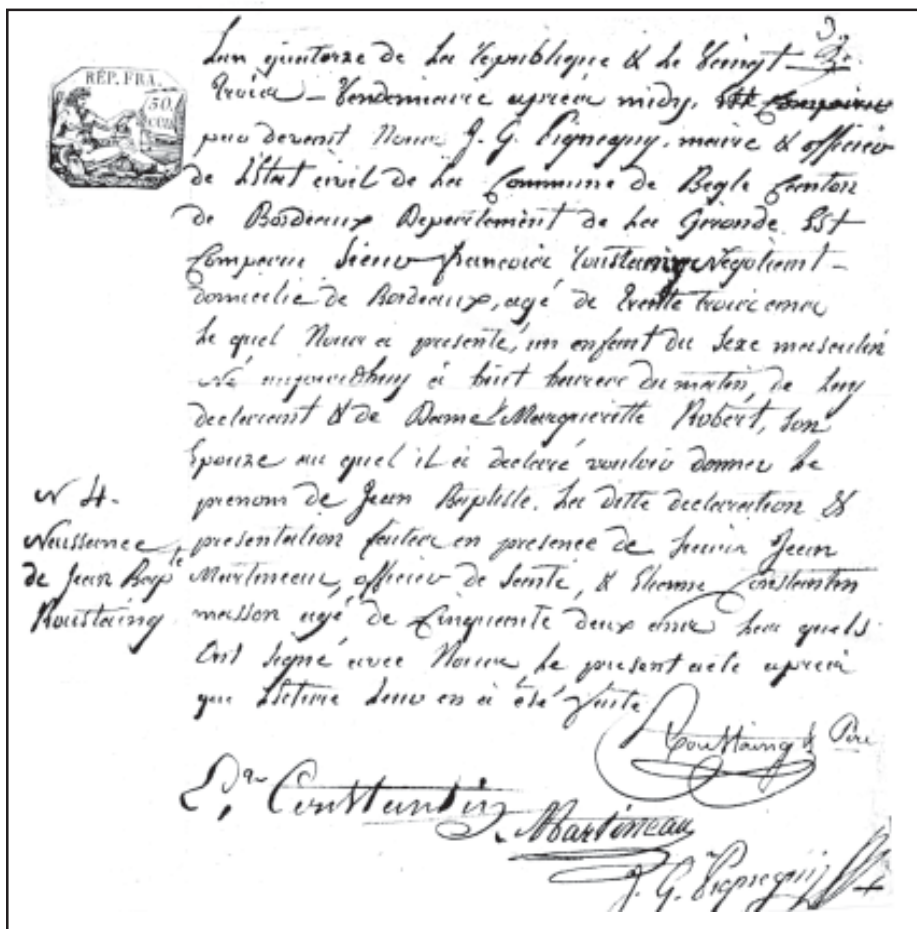 RÉP. FRA.
50.
CEN.
Lan quatorze de La republique & Le veingt-
troica - Vendemiaire apreia midy,
par devant Nous J. G. Pigneguy, maire & officier
de L'Etat civil de La Commune de Begle Canton
de Bordeaux Departement de La Gironde Est
Comparu Sieur francoica Roustaing Negotient -
domicilie de Bordeaux, agé de trente troica ana
Le quel Nous a presenté, un enfant du Sexe masculin
Né aujourdhuy à huit heurea du matin, de Luy
declarant & de Dame Marguerette Robert, Son
Epouze au quel il a declaré vouloir donner Le
prenom de Jean Baptiste. La ditte declaration &
presentation faitea en presence de Jean
Martineau, officier de Santé, & Etienne Constantin
masson agé de Cinquante deux ana Lea quels
Ont Signé avec Nous Le present acte apreia
que Lecture Leur en a été faite
N 4.
Naissance
de Jean Bap.te
Roustaing
Roustaing Père
Constantin
Martineau
J. G. Pigneguy